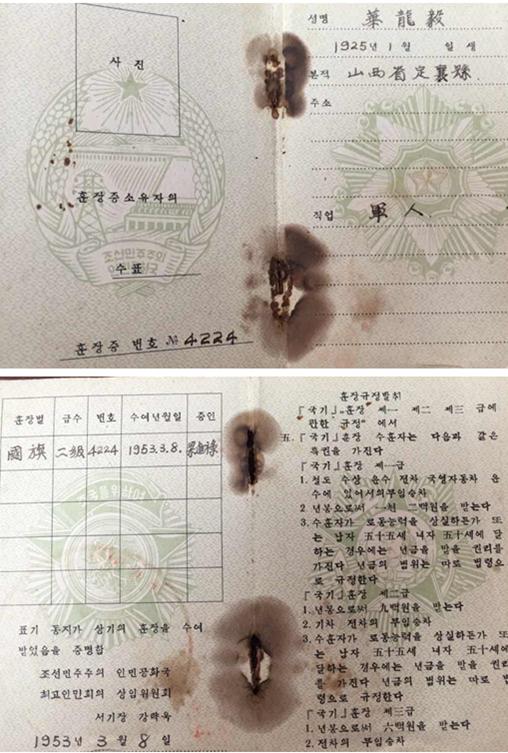 사 진
훈장증소유자의
조선민주주의
수표
훈장증 번호 № 4224
성명 華龍毅
1925년 1월 일생
본적 山西省定襄縣
주소
직업 軍人
훈장별 급수 번호 수여년월일 증인
國旗 二級 4224 1953.3.8.
표기 동지가 상기의 훈장을 수여
받었음을 증명함
조선민주주의 인민공화국
최고인민회의 상임위원회
서기장 강량욱
1953년 3월 8일
훈장규정발취
『국기』훈장 쩨一 쩨二 쩨三 급에
관한 규정" 에서
五. 『국기』훈장 수훈자는 다음과 같은
특권을 가진다
『국기』훈장 쩨一급
1. 철도 수상 운수 전차 국영자동차 운
수에 있어서의무임승차
2. 년봉으로써 一천 二백원을 받는다
3. 수훈자가 로동능력을 상실하든가 또
는 남자 五十五세 녀자 五十세에 달
하는 경우에는 년금을 받을 권리를
가진다 년금의 범위는 따로 법령으
로 규정한다
『국기』훈장 쩨二급
1. 년봉으로써 九백원을 받는다
2. 기차 전차의 무임승차
3. 수훈자가 로동능력을 상실하든가 또
는 남자 五十五세 녀자 五十세에
달하는 경우에는 년금을 받을 권리
를 가진다 년금의 범위는 따로 법
령으로 규정한다
『국기』훈장 쩨三급
1. 년봉으로써 六백원을 받는다
2. 전차의 무임승차